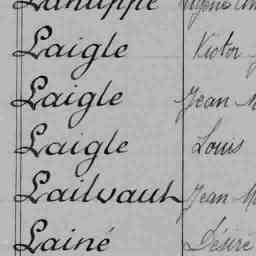 Laigle Victor
Laigle Jean
Laigle Louis
Lailvault Jean
Lainé Désiré